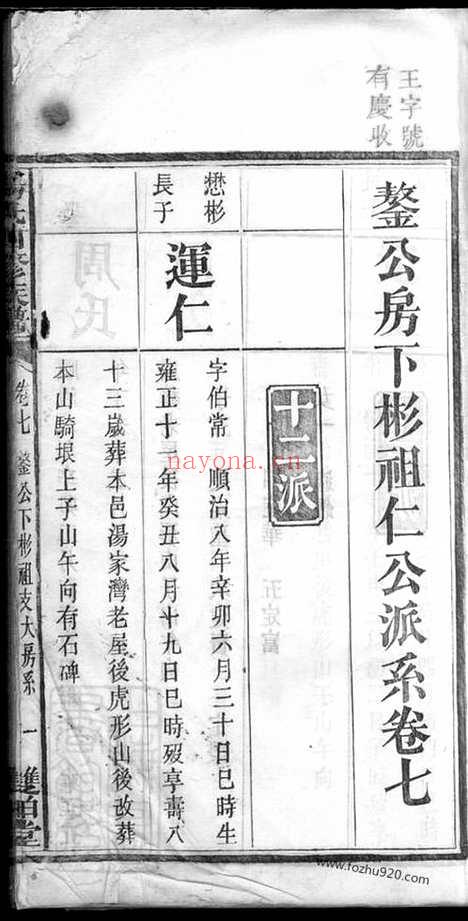 王字號
有慶收
鏊公房下彬祖仁公派系卷七
十二派
懋彬
長子
運仁
字伯常 順治八年辛卯六月三十日巳時生
雍正十一年癸丑八月十九日巳時殁享壽八
十三歲葬本邑湯家灣老屋後虎形山後改葬
本山騎垠上子山午向有石碑
修族譜
卷七
鏊公下彬祖支大房系
一
堂
周氏
nayona.cn
www.fozhu920.com